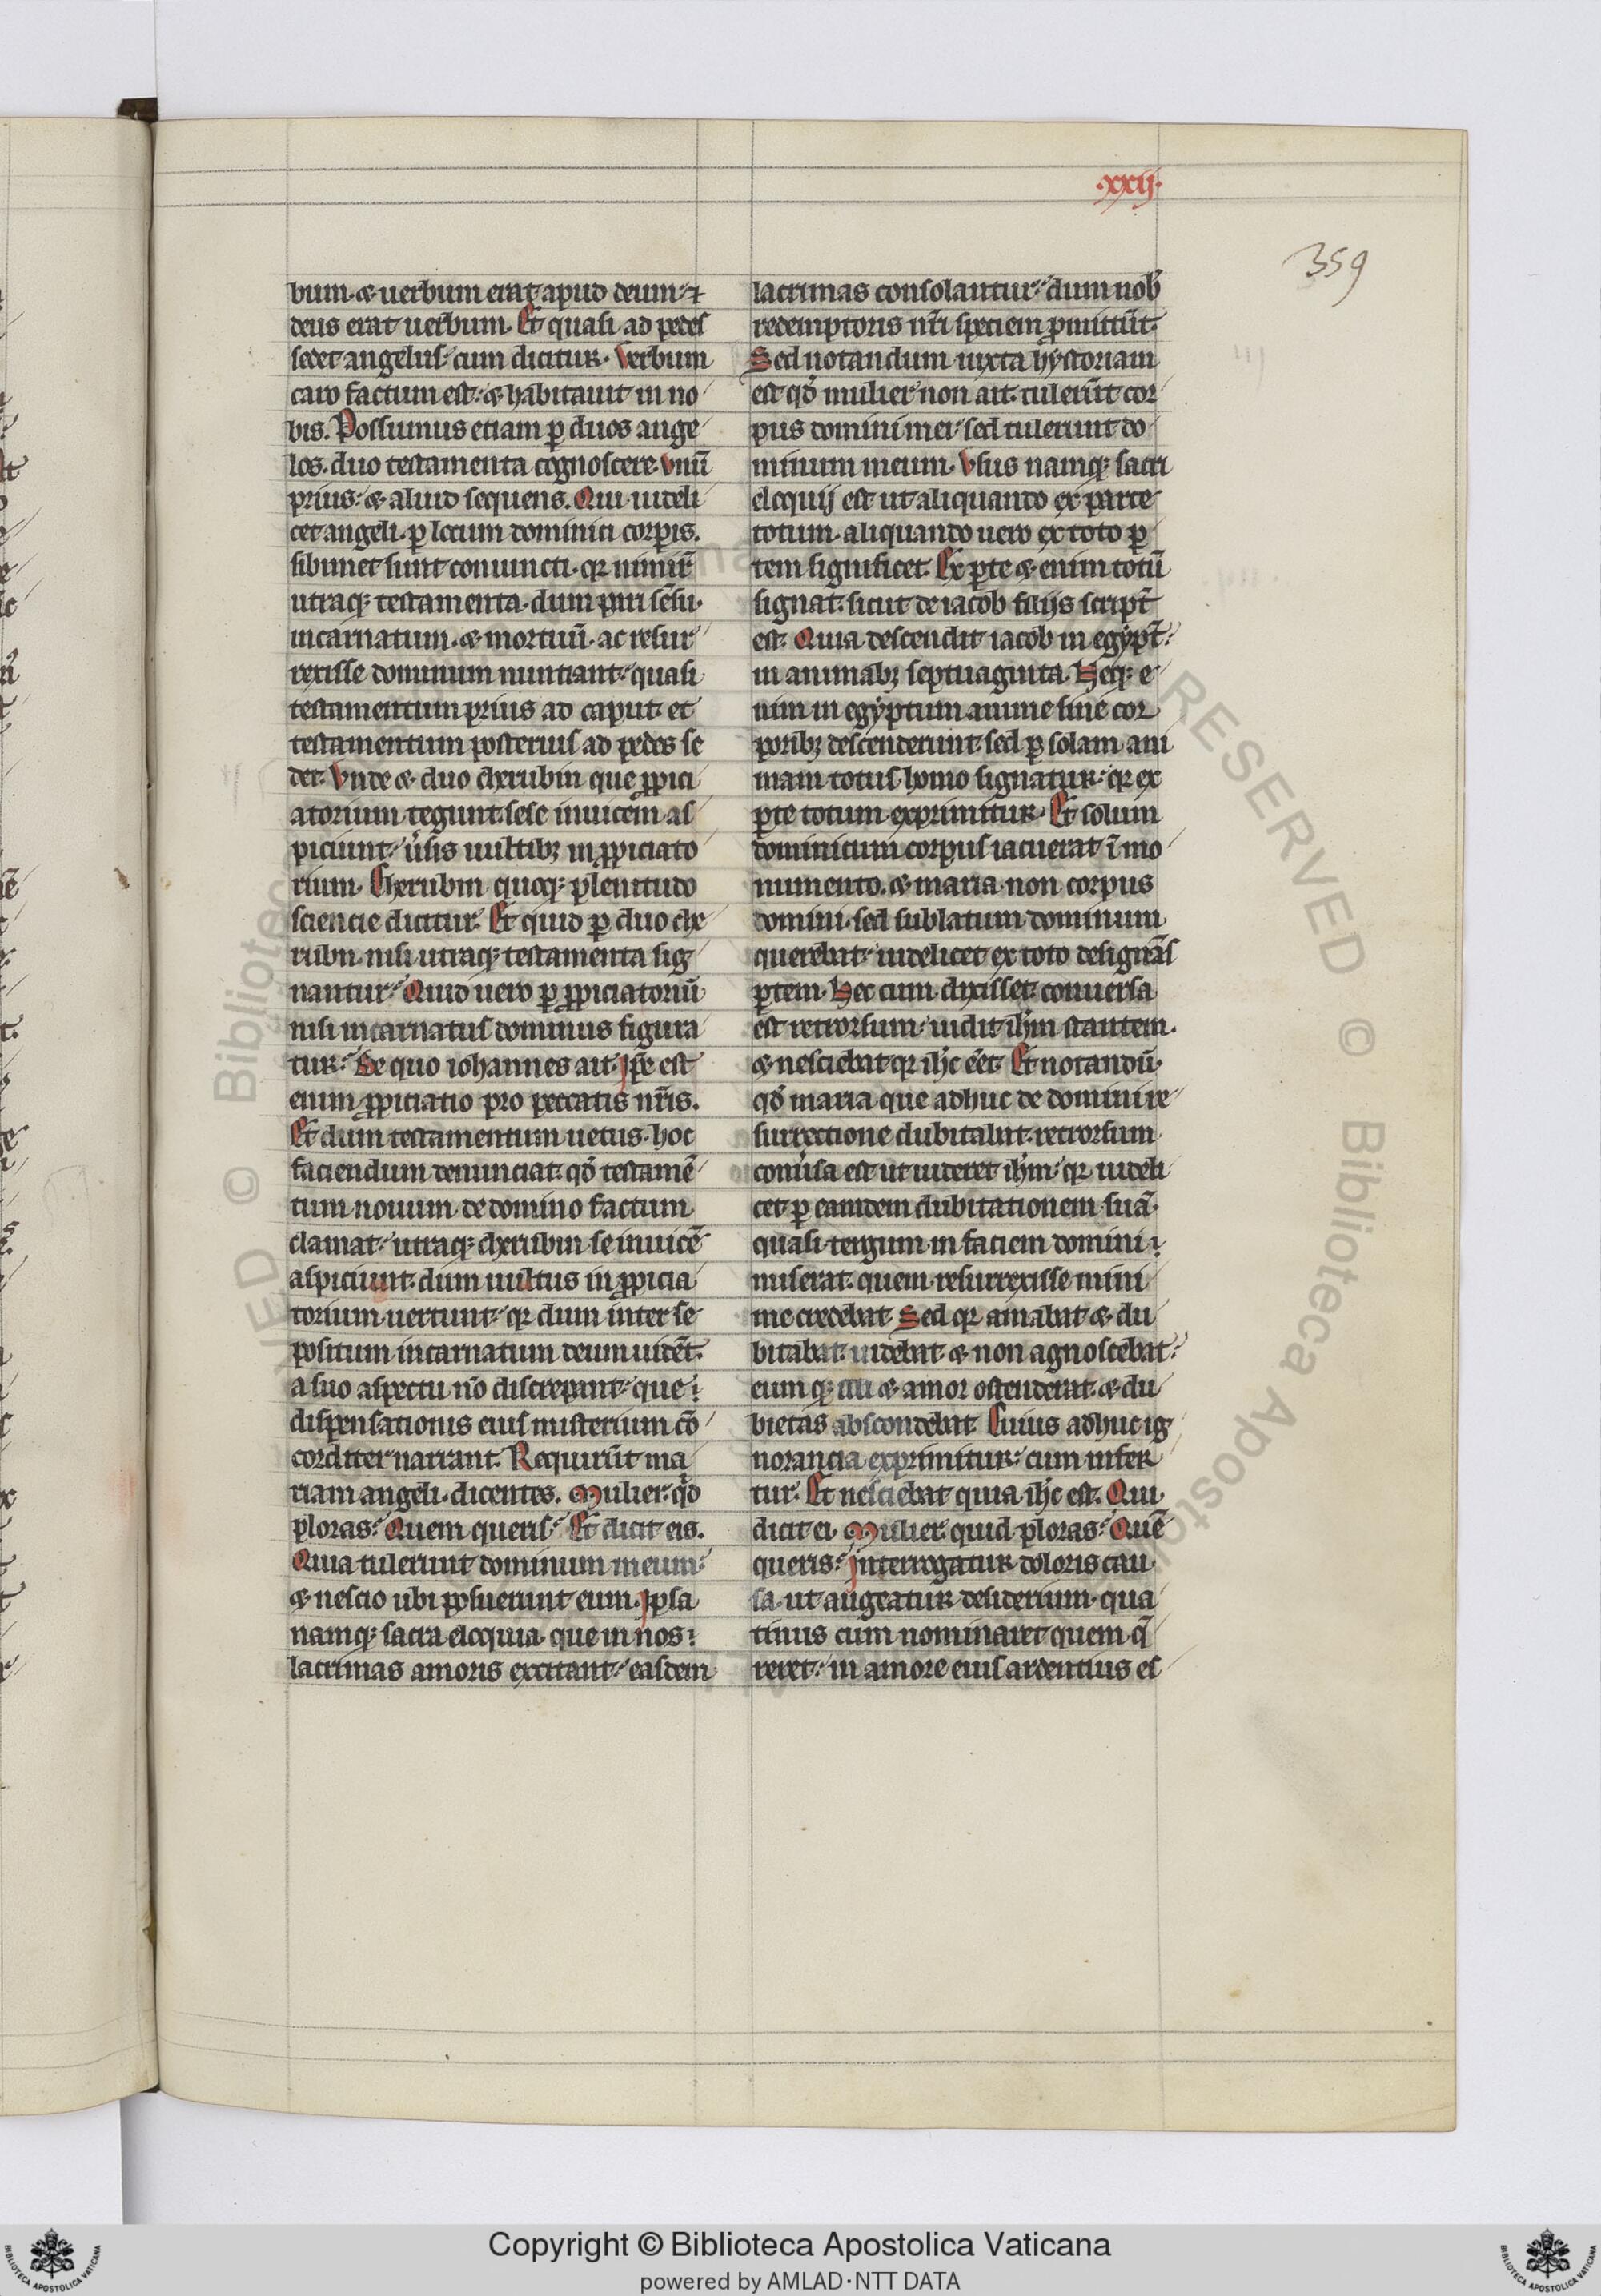 .xxij.
359
bum. & uerbum erat apud deum: ⁊
deus erat uerbum. Et quasi ad pedes
sedet angelus: cum dicitur. Verbum
caro factum est: & habitauit in no
bis. Possumus etiam ꝑ duos ange
los. duo testamenta cognoscere. vnū
prius: & aliud sequens. Qui uideli
cet angeli. ꝑ locum dominici corpis.
sibimet sunt coniuncti. qꝛ nimiꝝ
utraqꝫ testamenta. dum pari sēsu.
incarnatum. & mortuū. ac resur
rexisse dominum nuntiant: quasi
testamentum prius ad caput. et
testamentum posterius ad pedes se
det. Vnde & duo cherubin que ꝓpici
atorium tegunt. sese inuicem as
piciunt: ūsis uultibꝫ in ꝓpiciato
rium. Cherubin quoqꝫ plenitudo
sciencie dicitur. Et quid ꝑ duo che
rubin. nisi utraqꝫ testamenta sig
nantur: Quid uero ꝑ ꝓpiciatoriū
nisi incarnatus dominus figura
tur: De quo iohannes ait. Ip̄e est
enim ꝓpiciatio pro peccatis nr̄is.
Et dum testamentum uetus. hoc
faciendum denunciat. qð testamē
tum nouum de domino factum
clamat: utraqꝫ cherubin se inuicē
aspiciunt. dum uultus in ꝓpicia
torium uertunt: qꝛ dum inter se
positum incarnatum deum uidēt.
a suo aspectu nō discrepant: que
dispensationis eius misterium cō
corditer narrant. Requirūt ma
riam angeli. dicentes. Mulier. qͥd
ploras: Quem queris: Et dicit eis.
Quia tulerunt dominum meum:
& nescio ubi posuerunt eum. Ipsa
namqꝫ sacra eloquia. que in nos
lacrimas amoris excitant: easdem
lacrimas consolantur: dum nob̄
redemptoris nr̄i speciem ꝓmittūt.
Sed notandum iuxta hystoriam
est qð mulier non ait. tulerūt cor
pus domini mei: sed tulerunt do
minum meum. Vsus namqꝫ sacri
eloquij est ut aliquando ex parte
totum. aliquando uero ex toto ꝑ
tem significet. Ex ꝑte & enim totū
signat. sicut de iacob filijs script̄
est. Quia descendit iacob in egypt̄:
in animabꝫ septuaginta. Neqꝫ e
nim in egyptum anime sine cor
poribꝫ descenderunt. sed ꝑ solam ani
mam totus homo signatur: qꝛ ex
ꝑte totum exprimitur. Et solum
dominicum corpus iacuerat ī mo
numento. & maria non corpus
domini. sed sublatum dominum
querebat: uidelicet ex toto designās
ꝑtem. Hec cum dixisset. conuersa
est retrorsum: uidit ih̄m stantem.
& nesciebat qꝛ ih̄c eēt. Et notandū.
qð maria que adhuc de domini re
surrectione dubitabat. retrorsum
conūsa est ut uideret ih̄m: qꝛ uideli
cet ꝑ eamdem dubitationem suā.
quasi tergum in faciem domini
miserat. quem resurrexisse mini
me credebat. Sed qꝛ amabat & du
bitabat. uidebat & non agnoscebat:
eum qꝫ illi & amor ostenderat. & du
bietas abscondebat. Cuius adhuc ig
norancia exprimitur: cum infer
tur. Et nesciebat quia ih̄c est. Qui
dicit ei. Mulier. quid ploras: Quē
queris: Interrogatur doloris cau
sa. ut augeatur desiderium. qua
tinus cum nominaret quem q̄
reret: in amore eius ardentius es
Copyright © Biblioteca Apostolica Vaticana
powered by AMLAD·NTT DATA